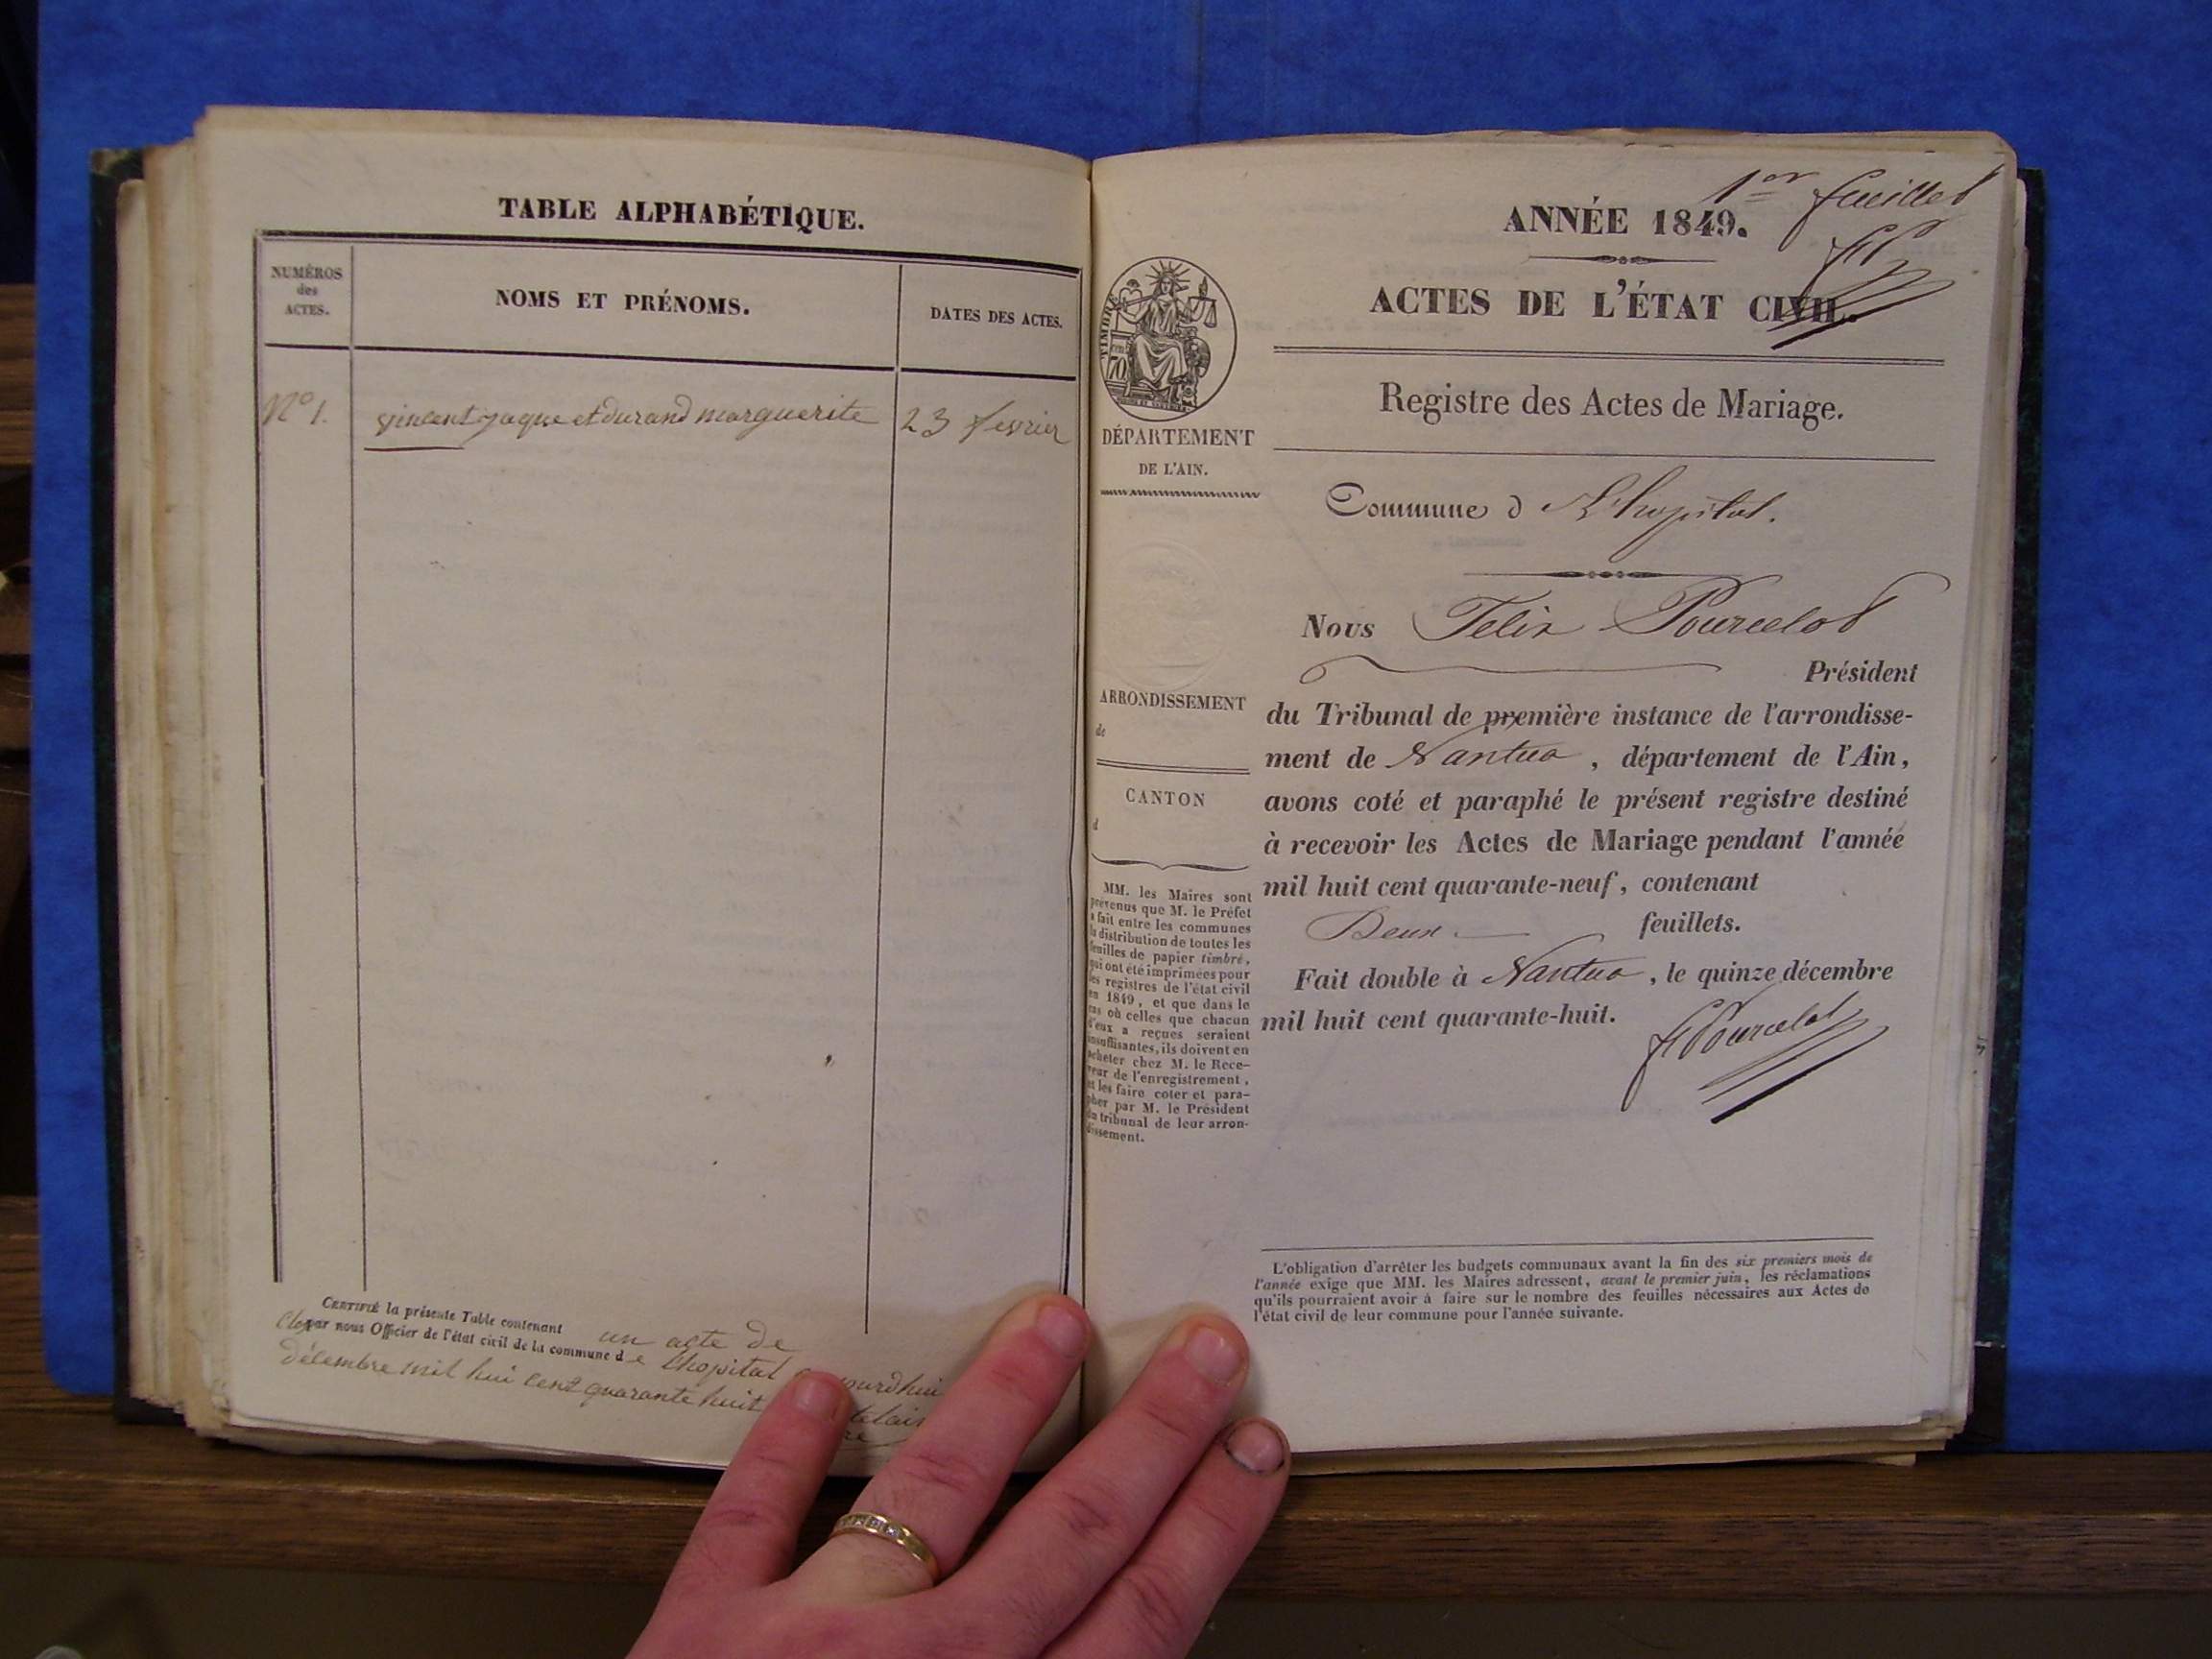 TABLE ALPHABÉTIQUE.
NUMÉROS
des
ACTES.
NOMS ET PRÉNOMS.
DATES DES ACTES.
N° 1. vincent jaque et durand marguerite 23 fevrier
CERTIFIÉ la présente Table contenant un acte de
par nous Officier de l'état civil de la commune de Lhopital
décembre mil hui cent quarante huit
1er feuillet
ANNÉE 1849.
ACTES DE L'ÉTAT CIVIL.
Registre des Actes de Mariage.
TIMBRE
70
DÉPARTEMENT
DE L'AIN.
Commune d L'hopital.
Nous Felix Pourcelot
Président
du Tribunal de première instance de l'arrondisse-
ment de Nantua , département de l'Ain,
avons coté et paraphé le présent registre destiné
à recevoir les Actes de Mariage pendant l'année
mil huit cent quarante-neuf, contenant
Deux feuillets.
Fait double à Nantua , le quinze décembre
mil huit cent quarante-huit.
FPourcelot
ARRONDISSEMENT
de
CANTON
d
MM. les Maires sont
prévenus que M. le Préfet
a fait entre les communes
la distribution de toutes les
feuilles de papier timbré,
qui ont été imprimées pour
les registres de l'état civil
en 1849, et que dans le
cas où celles que chacun
d'eux a reçues seraient
insuffisantes, ils doivent en
acheter chez M. le Rece-
veur de l'enregistrement,
et les faire coter et para-
pher par M. le Président
du tribunal de leur arron-
dissement.
L'obligation d'arrêter les budgets communaux avant la fin des six premiers mois de
l'année exige que MM. les Maires adressent, avant le premier juin, les réclamations
qu'ils pourraient avoir à faire sur le nombre des feuilles nécessaires aux Actes de
l'état civil de leur commune pour l'année suivante.